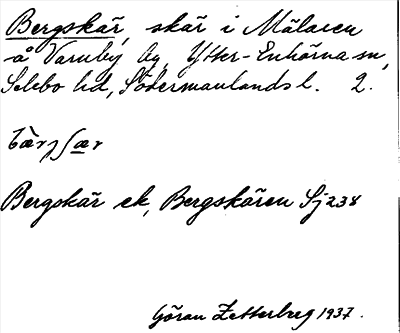 Bergskär, skär i Mälaren
å Varnby by, Ytter-Enhörna sn,
Selebo hd, Södermanlands l. 2.
bàrjʃær
Bergskär ek, Bergskären Sj 238
Göran Zetterberg 1937.